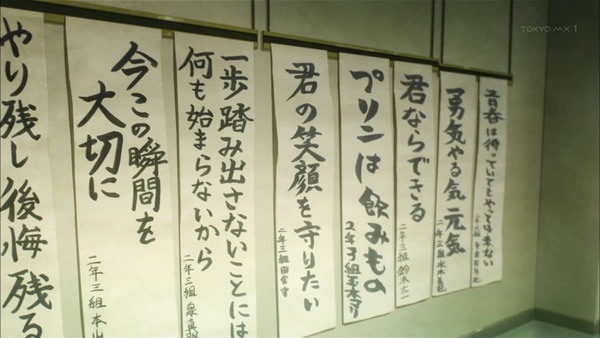 TOKYO MX1
青春は待っていてもやって来ない
勇気やる気元気
二年三組
君ならできる
二年三組 鈴木太一
プリンは飲みもの
2年3組
君の笑顔を守りたい
二年三組
一歩踏み出さないことには
何も始まらないから
二年三組 泉真
今この瞬間を
大切に
二年三組 本山
やり残し後悔残る